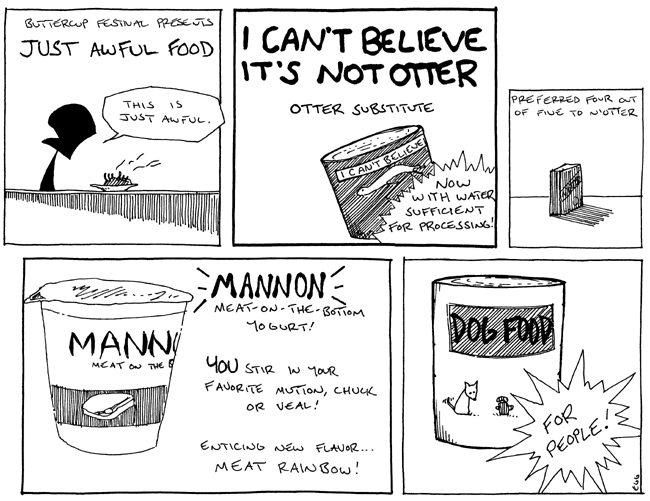 BUTTERCUP FESTIVAL PRESENTS
JUST AWFUL FOOD
THIS IS
JUST AWFUL.
I CAN'T BELIEVE
IT'S NOT OTTER
OTTER SUBSTITUTE
I CAN'T BELIEVE
NOW
WITH WATER
SUFFICIENT
FOR PROCESSING!
PREFERRED FOUR OUT
OF FIVE TO N'OTTER
N'OTTER
MANNO
MEAT ON THE B
MANNON
MEAT-ON-THE-BOTTOM
YOGURT!
YOU STIR IN YOUR
FAVORITE MUTTON, CHUCK
OR VEAL!
ENTICING NEW FLAVOR...
MEAT RAINBOW!
DOG FOOD
FOR
PEOPLE!